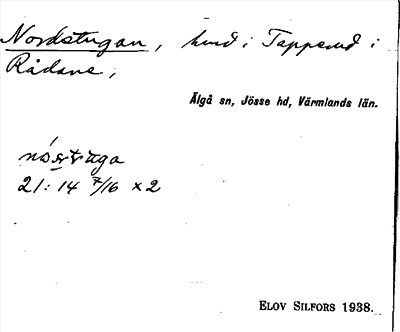 Nordstugan, hmd i Tapperud i
Rådane,
Älgå sn, Jösse hd, Värmlands län.
21: 14 7/16 x 2
ELOV SILFORS 1938.